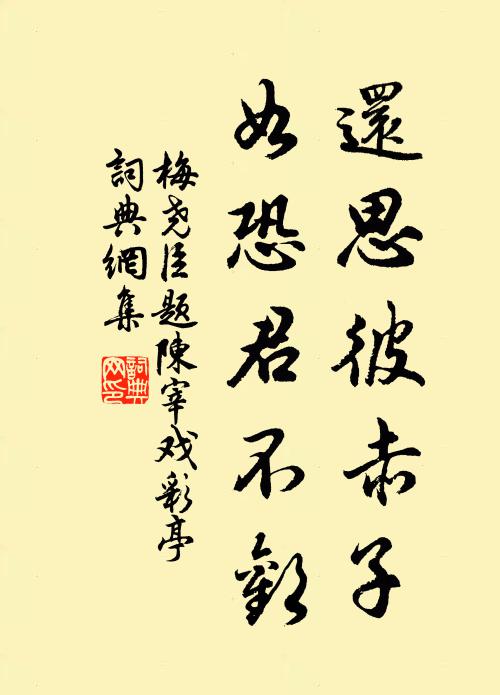 還思彼赤子
如恐君不歡
梅尧臣題陳宰戏彩亭
詞典網集
詞典网印